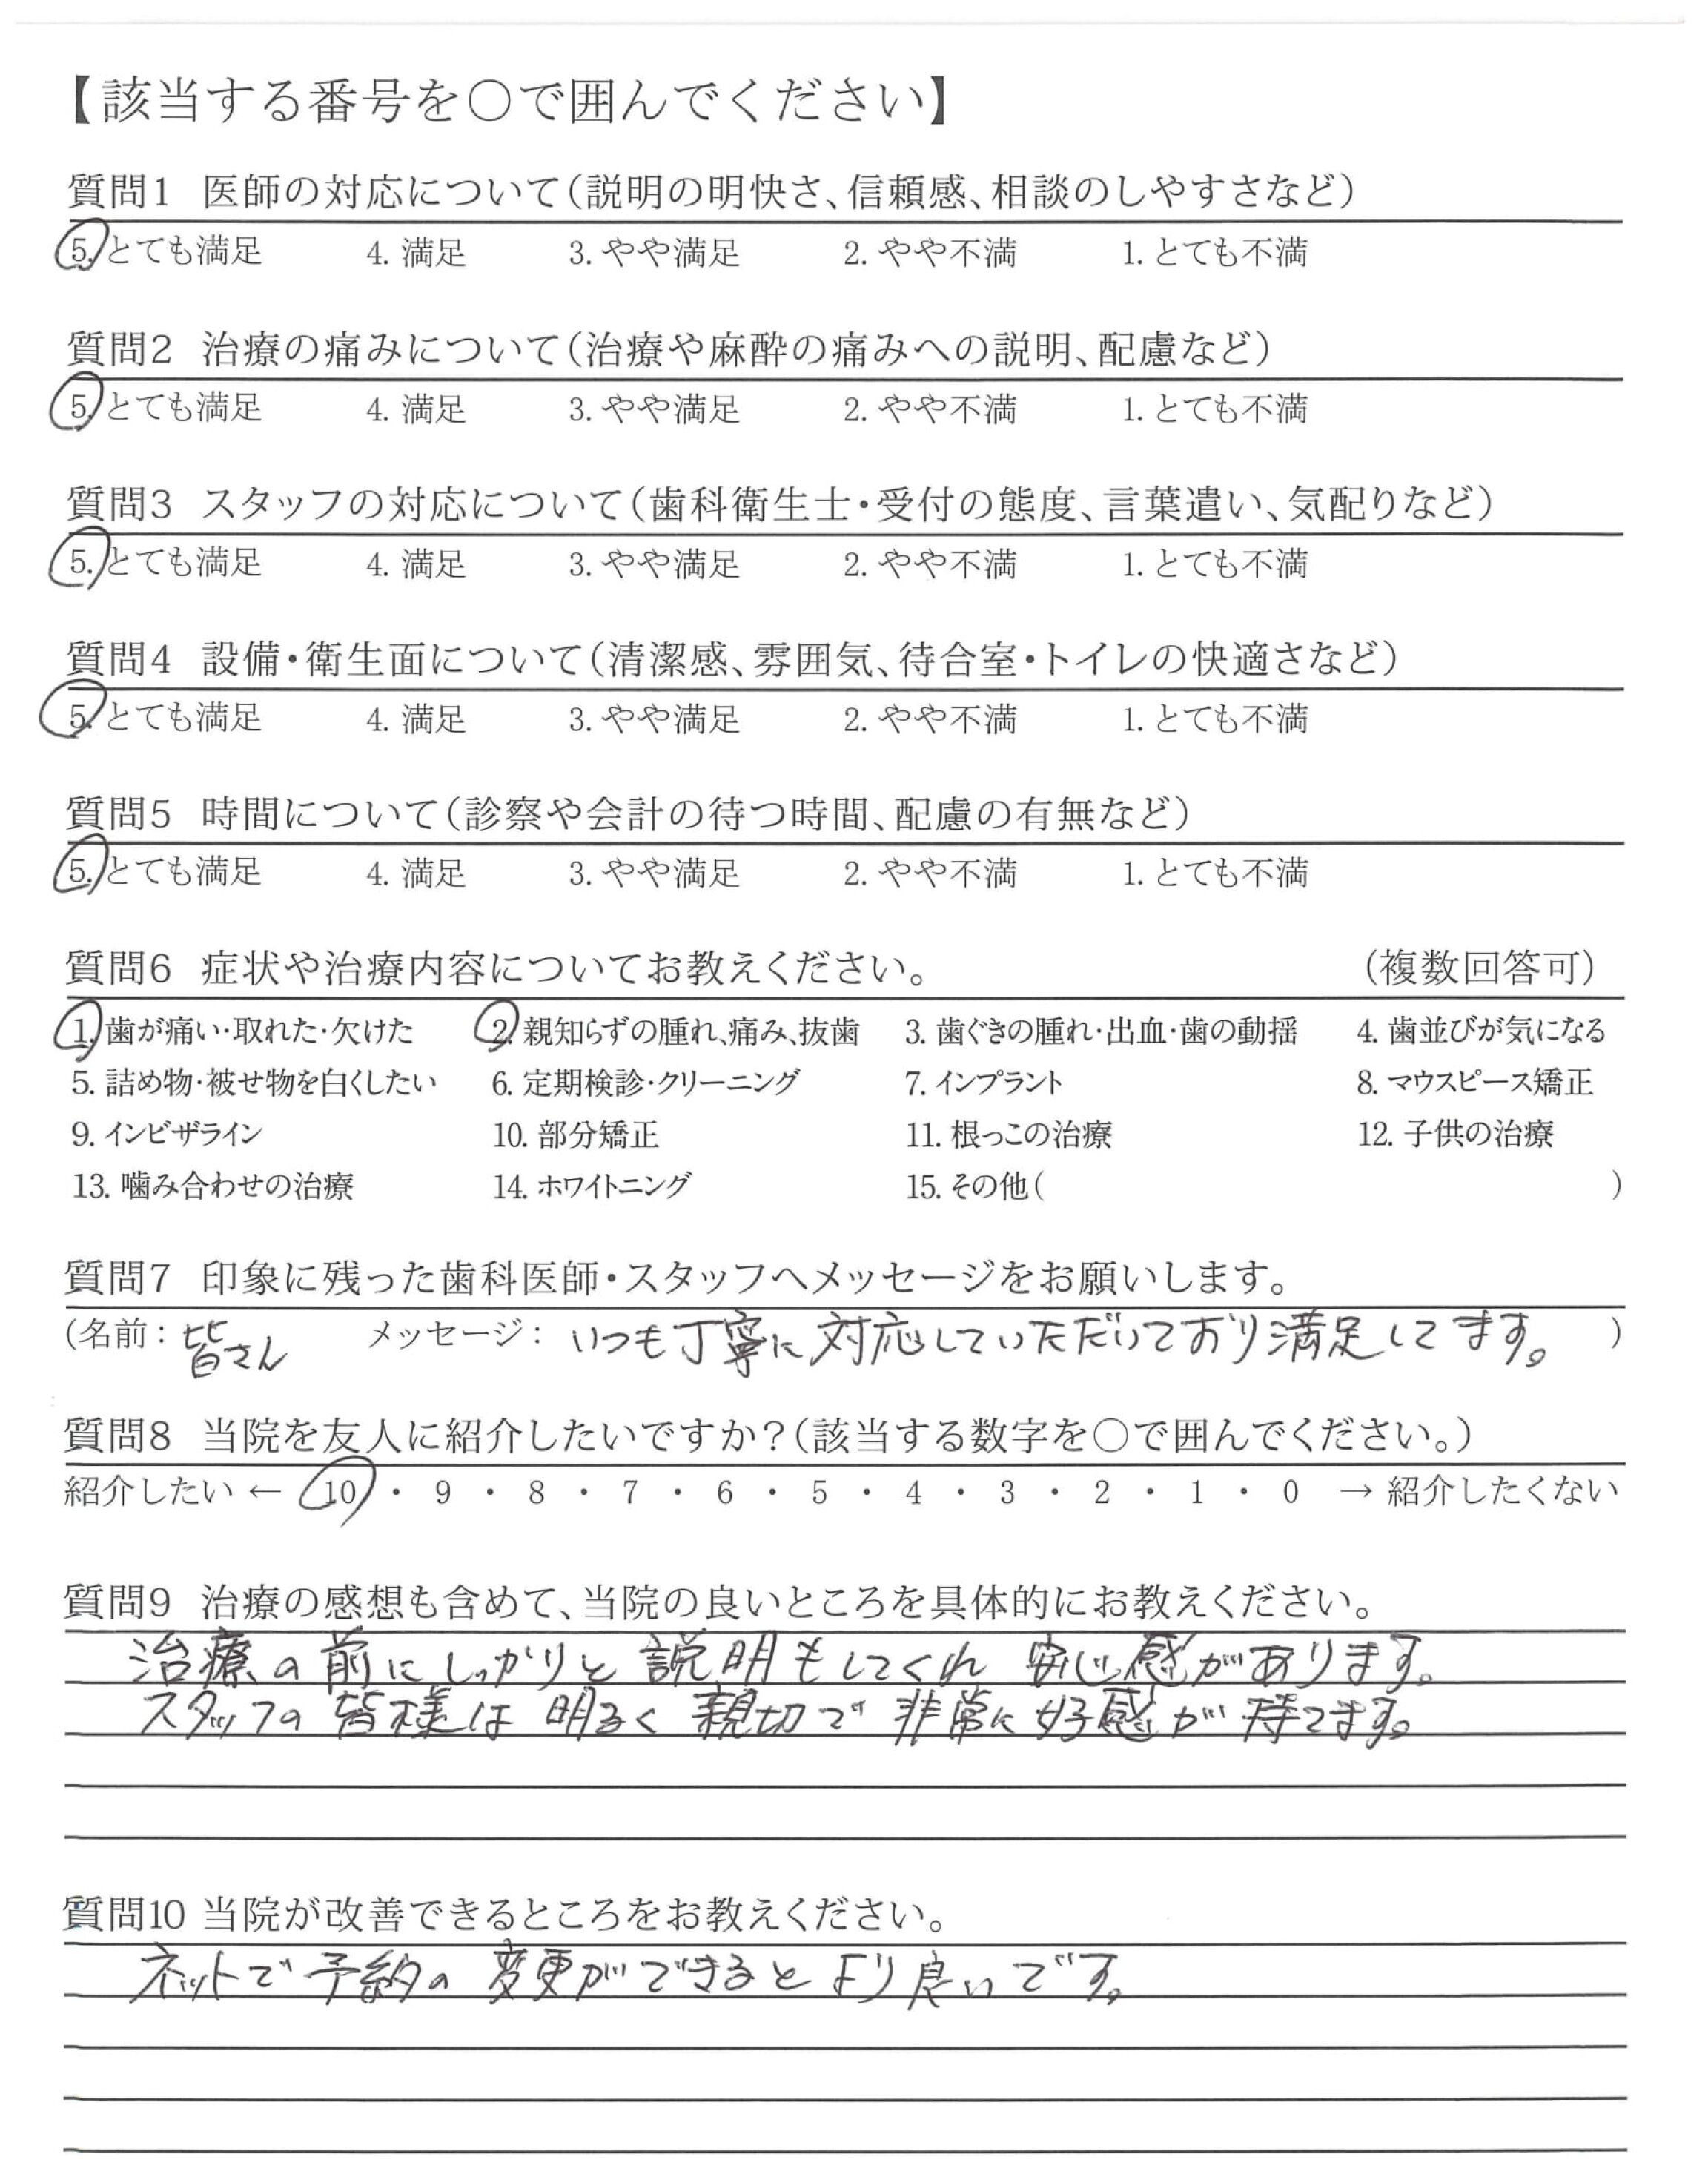 【該当する番号を○で囲んでください】
質問1 医師の対応について(説明の明快さ、信頼感、相談のしやすさなど)
5. とても満足 4. 満足 3. やや満足 2. やや不満 1. とても不満
質問2 治療の痛みについて(治療や麻酔の痛みへの説明、配慮など)
5. とても満足 4. 満足 3. やや満足 2. やや不満 1. とても不満
質問3 スタッフの対応について(歯科衛生士・受付の態度、言葉遣い、気配りなど)
5. とても満足 4. 満足 3. やや満足 2. やや不満 1. とても不満
質問4 設備・衛生面について(清潔感、雰囲気、待合室・トイレの快適さなど)
5. とても満足 4. 満足 3. やや満足 2. やや不満 1. とても不満
質問5 時間について(診察や会計の待つ時間、配慮の有無など)
5. とても満足 4. 満足 3. やや満足 2. やや不満 1. とても不満
質問6 症状や治療内容についてお教えください。 (複数回答可)
1. 歯が痛い・取れた・欠けた 2. 親知らずの腫れ、痛み、抜歯 3. 歯ぐきの腫れ・出血・歯の動揺 4. 歯並びが気になる
5. 詰め物・被せ物を白くしたい 6. 定期検診・クリーニング 7. インプラント 8. マウスピース矯正
9. インビザライン 10. 部分矯正 11. 根っこの治療 12. 子供の治療
13. 噛み合わせの治療 14. ホワイトニング 15. その他( )
質問7 印象に残った歯科医師・スタッフへメッセージをお願いします。
(名前: 皆さん メッセージ: いつも丁寧に対応していただいており満足してます。 )
質問8 当院を友人に紹介したいですか?(該当する数字を○で囲んでください。)
紹介したい ← 10 ・ 9 ・ 8 ・ 7 ・ 6 ・ 5 ・ 4 ・ 3 ・ 2 ・ 1 ・ 0 → 紹介したくない
質問9 治療の感想も含めて、当院の良いところを具体的にお教えください。
治療の前にしっかりと説明もしてくれ 安心感があります。
スタッフの皆様は明るく親切で非常に好感が持てます。
質問10 当院が改善できるところをお教えください。
ネットで予約の変更ができるとより良いです。